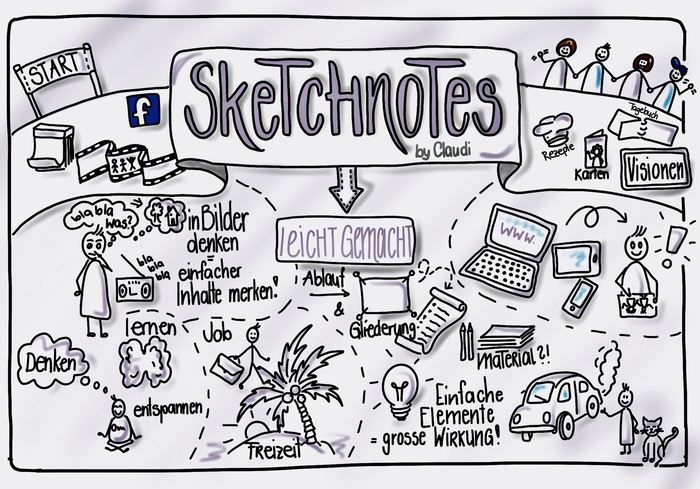 START
f
SKeTcHnoTes
by Claudi
Tagebuch
Rezepte
Karten
Visionen
leicht Gemacht
bla bla
was?
bla
bla
bla
in Bilder
denken
=
einfacher
Inhalte merken!
Ablauf
&
Gliederung
www.
!
lernen
Denken
entspannen
Om
Job
Freizeit
Material?!
Einfache
Elemente
= grosse Wirkung!